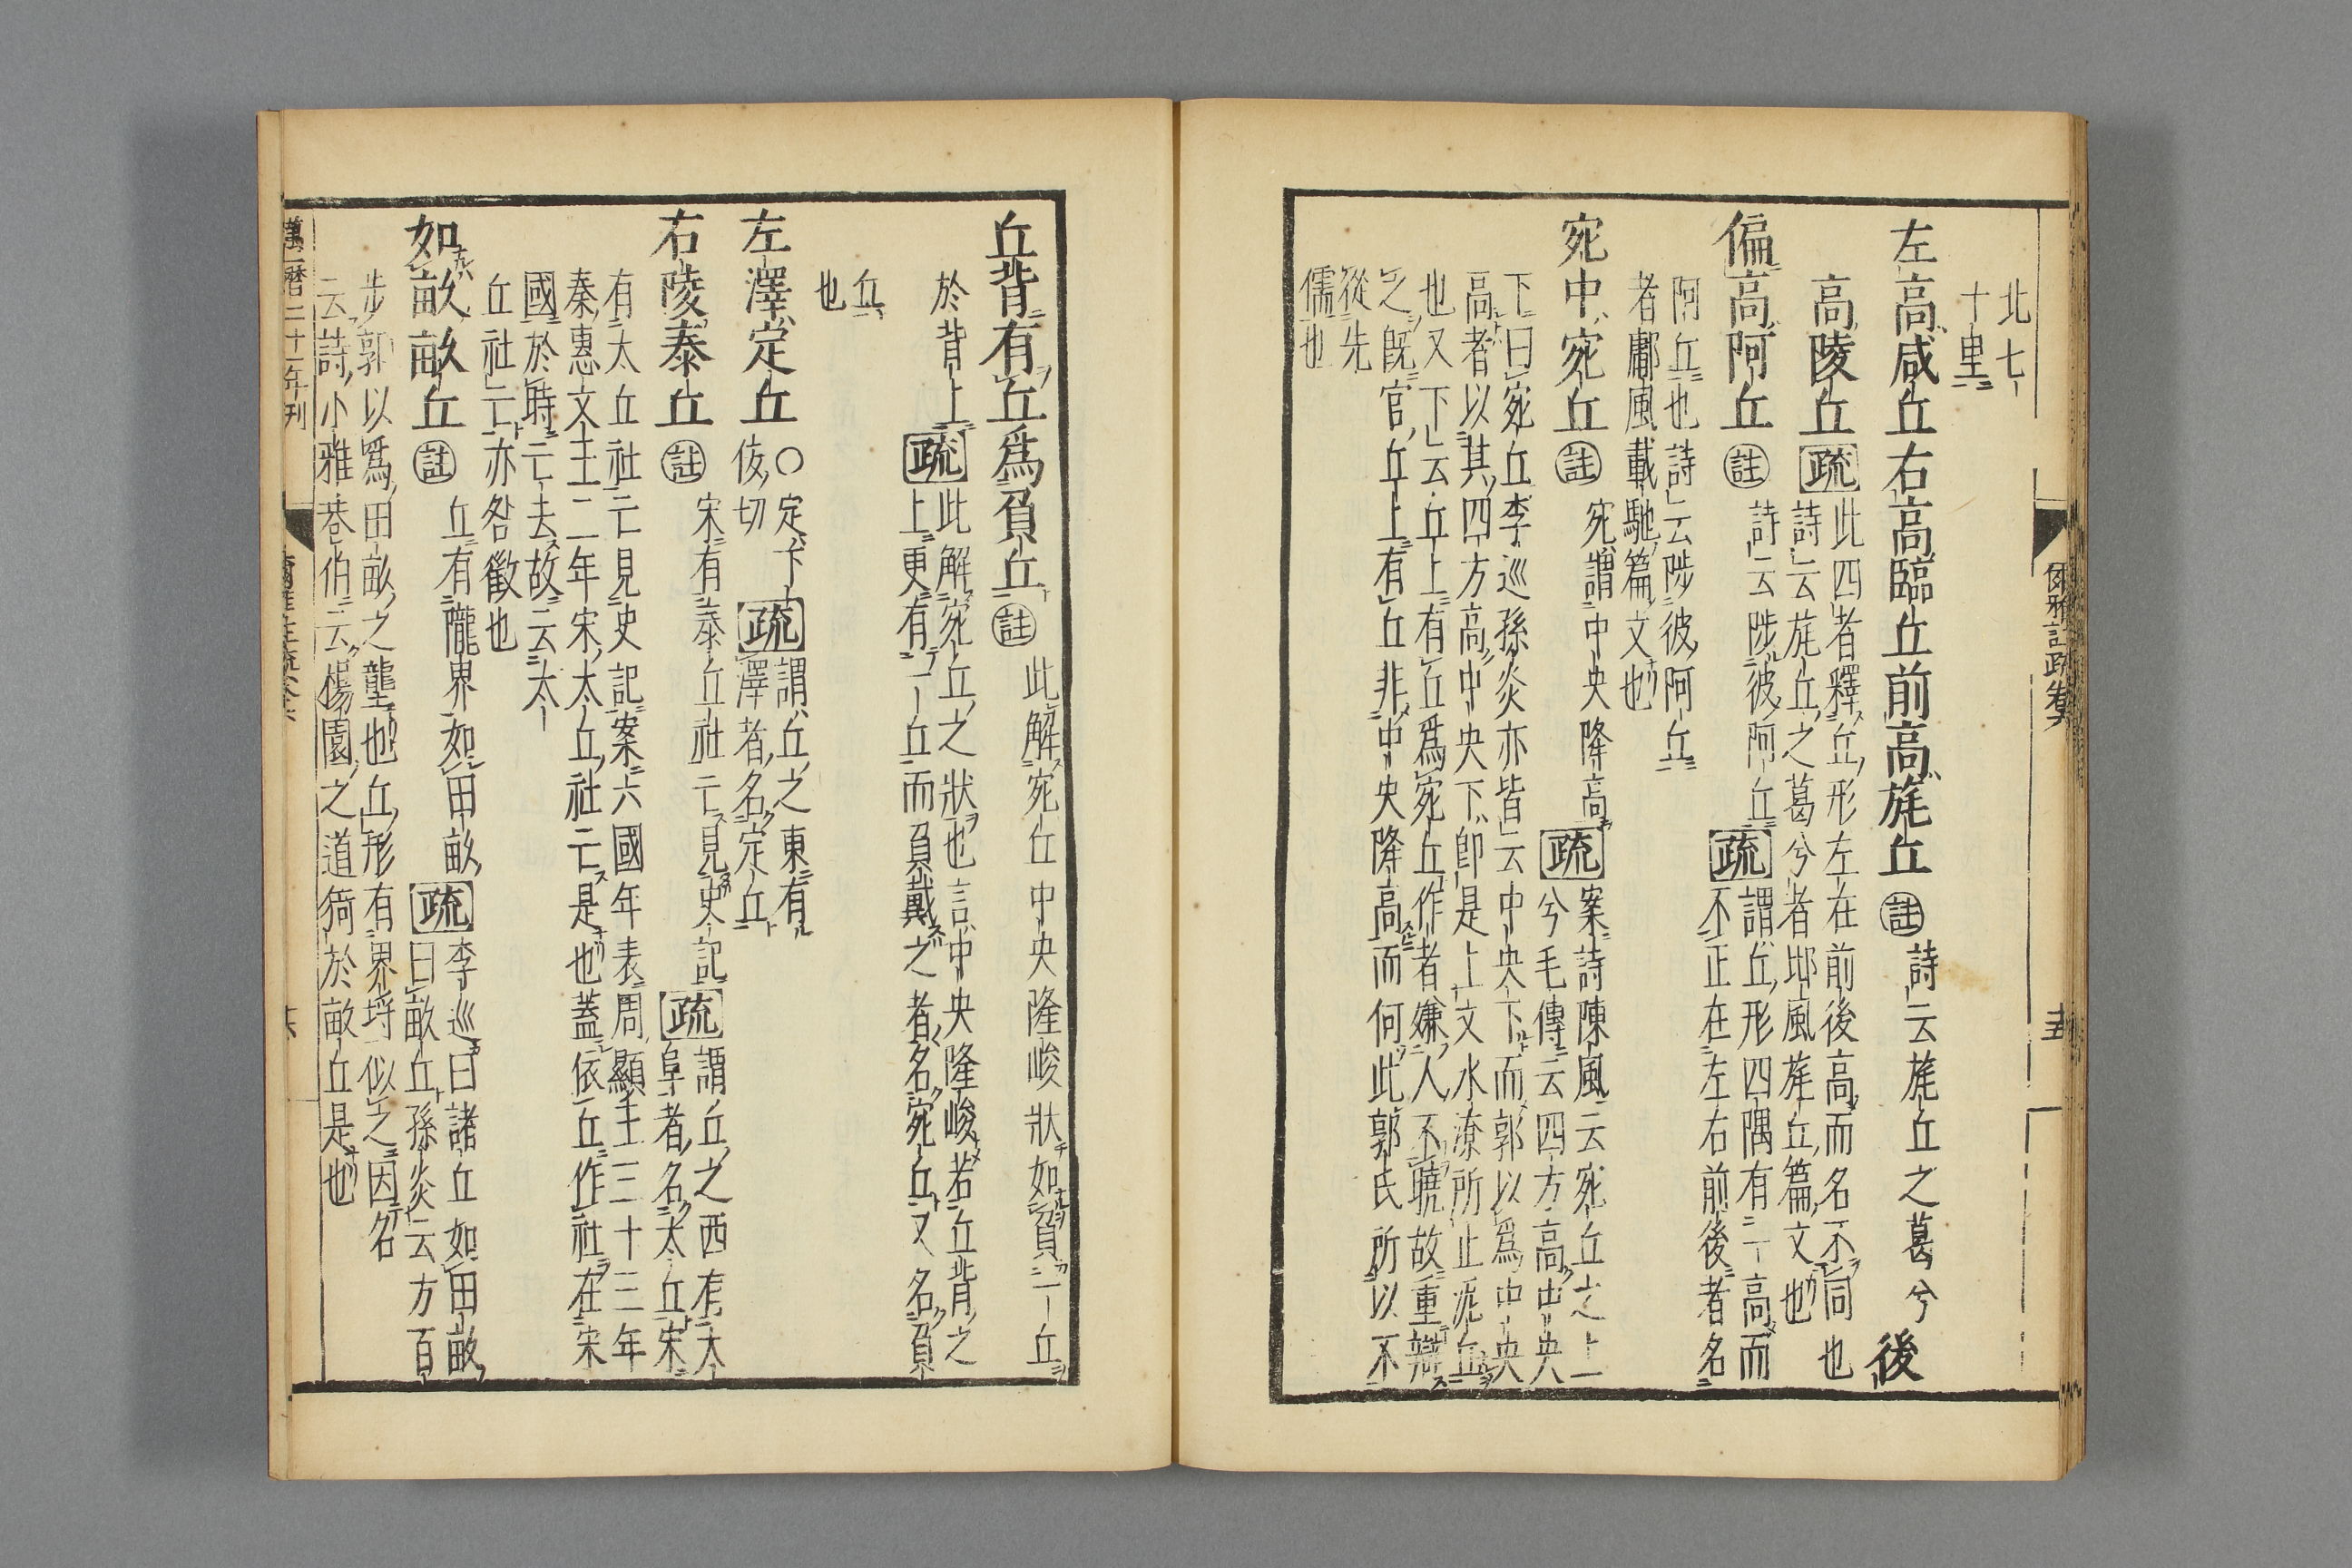 北七
十里
左高咸丘右高臨丘前高旄丘註詩云旄丘之葛兮後
高陵丘疏此四者釋丘形左在前後高而名不同也
詩云旄丘之葛兮者邶風旄丘篇文也
偏高阿丘註詩云陟彼阿丘疏謂丘形四隅有一高而
不正在左右前後者名
阿丘也詩云陟彼阿丘
者鄘風載馳篇文也
宛中宛丘註宛謂中央隆高疏案詩陳風云宛丘之上
兮毛傳云四方高中央
下曰宛丘李巡孫炎亦皆云中央下而郭以爲中央
高者以其四方高中央下卽是上文水潦所止泥丘
也又下云丘上有丘爲宛丘作者嫌人不曉故重辯
之旣官丘上有丘非中央隆高而何此郭氏所以不
從先
儒也
爾雅註疏卷六
十五
丘背有丘爲負丘註此解宛丘中央隆峻狀如負一丘
於背上疏此解宛丘之狀也言中央隆峻若丘背之
上更有一丘而負戴之者名宛丘又名負
丘
也
左澤定丘○定丁佞切疏謂丘之東有
澤者名定丘
右陵泰丘註宋有泰丘社亡見史記疏謂丘之西有大
阜者名太丘宋
有太丘社亡見史記案六國年表周顯王三十三年
秦惠文王二年宋太丘社亡是也蓋依丘作社在宋
國於時亡去故云太
丘社亡亦咎徵也
如畝畝丘註丘有隴界如田畝疏李巡曰諸丘如田畝
曰畝丘孫炎云方百
步郭以爲田畝之壟也丘形有界埒似之因名
云詩小雅巷伯云楊園之道猗於畝丘是也
萬曆二十一年刊
爾雅註疏卷六
十六